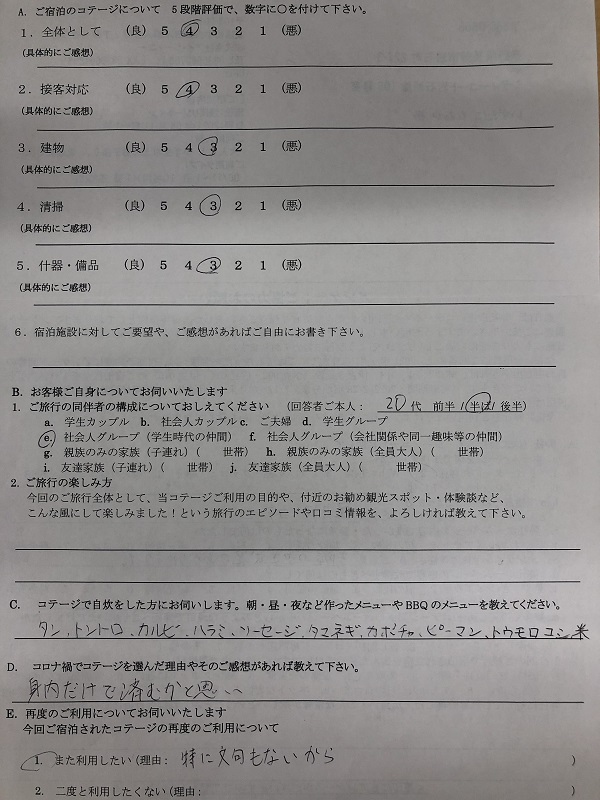 A. ご宿泊のコテージについて 5段階評価で、数字に〇を付けて下さい。
1．全体として (良) 5 4 3 2 1 (悪)
(具体的にご感想)
2．接客対応 (良) 5 4 3 2 1 (悪)
(具体的にご感想)
3．建物 (良) 5 4 3 2 1 (悪)
(具体的にご感想)
4．清掃 (良) 5 4 3 2 1 (悪)
(具体的にご感想)
5．什器・備品 (良) 5 4 3 2 1 (悪)
(具体的にご感想)
6．宿泊施設に対してご要望や、ご感想があればご自由にお書き下さい。
B. お客様ご自身についてお伺いいたします
1. ご旅行の同伴者の構成についておしえてください (回答者ご本人： 20代 前半 / 半ば / 後半)
a. 学生カップル b. 社会人カップル c. ご夫婦 d. 学生グループ
e. 社会人グループ（学生時代の仲間） f. 社会人グループ（会社関係や同一趣味等の仲間）
g. 親族のみの家族（子連れ）（ 世帯） h. 親族のみの家族（全員大人）（ 世帯）
i. 友達家族（子連れ）（ 世帯） j. 友達家族（全員大人）（ 世帯）
2. ご旅行の楽しみ方
今回のご旅行全体として、当コテージご利用の目的や、付近のお勧め観光スポット・体験談など、
こんな風にして楽しみました！という旅行のエピソードや口コミ情報を、よろしければ教えて下さい。
C. コテージで自炊をした方にお伺いします。朝・昼・夜など作ったメニューやBBQのメニューを教えてください。
タン、トントロ、カルビ、ハラミ、ソーセージ、タマネギ、カボチャ、ピーマン、トウモロコシ 米
D. コロナ禍でコテージを選んだ理由やそのご感想があれば教えて下さい。
身内だけで済むかと思い
E. 再度のご利用についてお伺いいたします
今回ご宿泊されたコテージの再度のご利用について
1. また利用したい（理由： 特に文句もないから ）
2. 二度と利用したくない（理由： ）